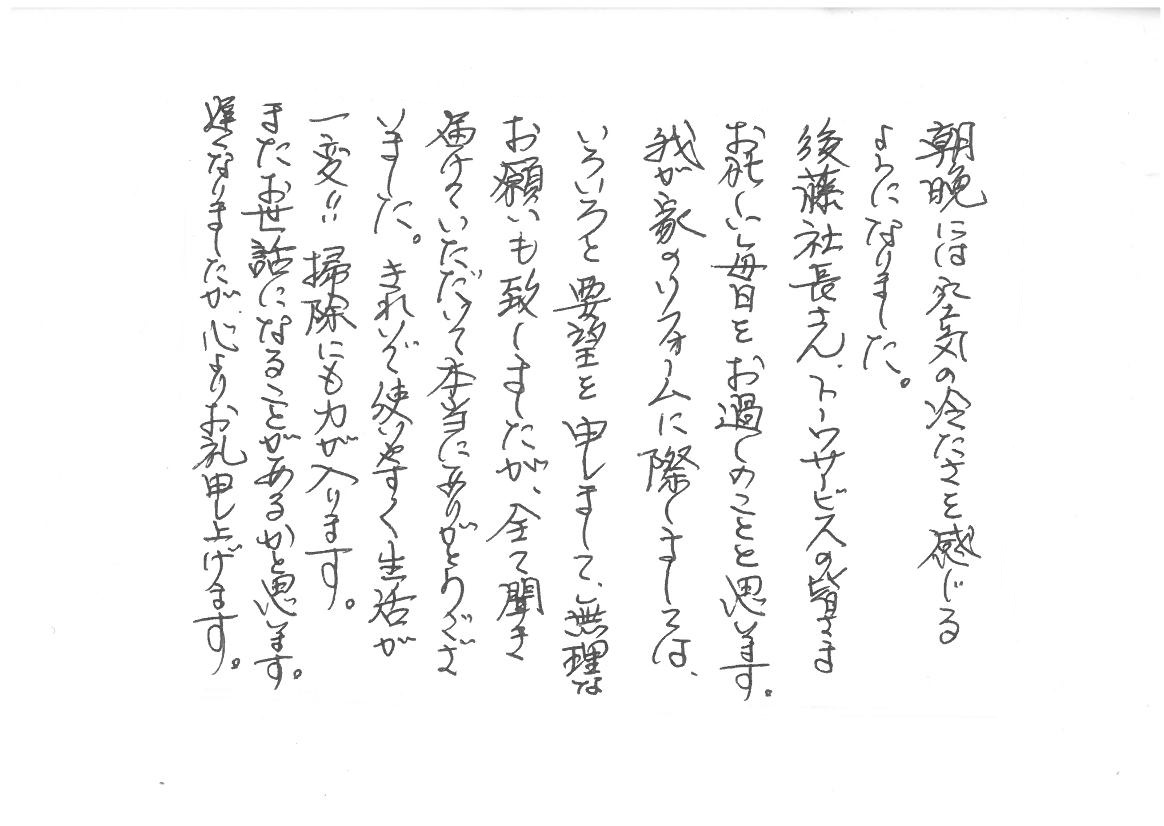 朝晩には空気の冷たさを感じる
ようになりました。
後藤社長さん、トーワサービスの皆さま
お忙しい毎日をお過しのことと思います。
我が家のリフォームに際しましては、
いろいろと要望を申しまして、無理な
お願いも致しましたが、全て聞き
届けていただいて本当にありがとうござ
いました。きれいで使いやすく生活が
一変!! 掃除にも力が入ります。
またお世話になることがあるかと思います。
遅くなりましたが心よりお礼申し上げます。